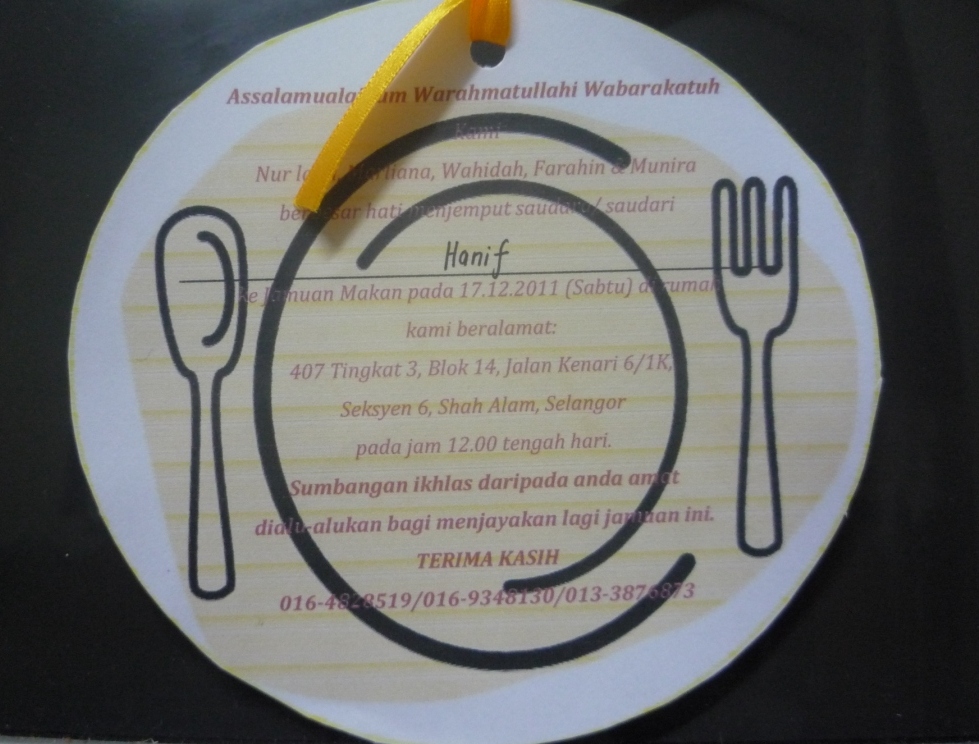 Assalamualaikum Warahmatullahi Wabarakatuh
Kami
Nur Wahidah, Farahin & Munira
berbesar hati menjemput saudara/ saudari
Hanif
ke Jamuan Makan pada 17.12.2011 (Sabtu) di rumah
kami beralamat:
407 Tingkat 3, Blok 14, Jalan Kenari 6/1K,
Seksyen 6, Shah Alam, Selangor
pada jam 12.00 tengah hari.
Sumbangan ikhlas daripada anda amat
dialu-alukan bagi menjayakan lagi jamuan ini.
TERIMA KASIH
016-4828519/016-9348130/013-3876873